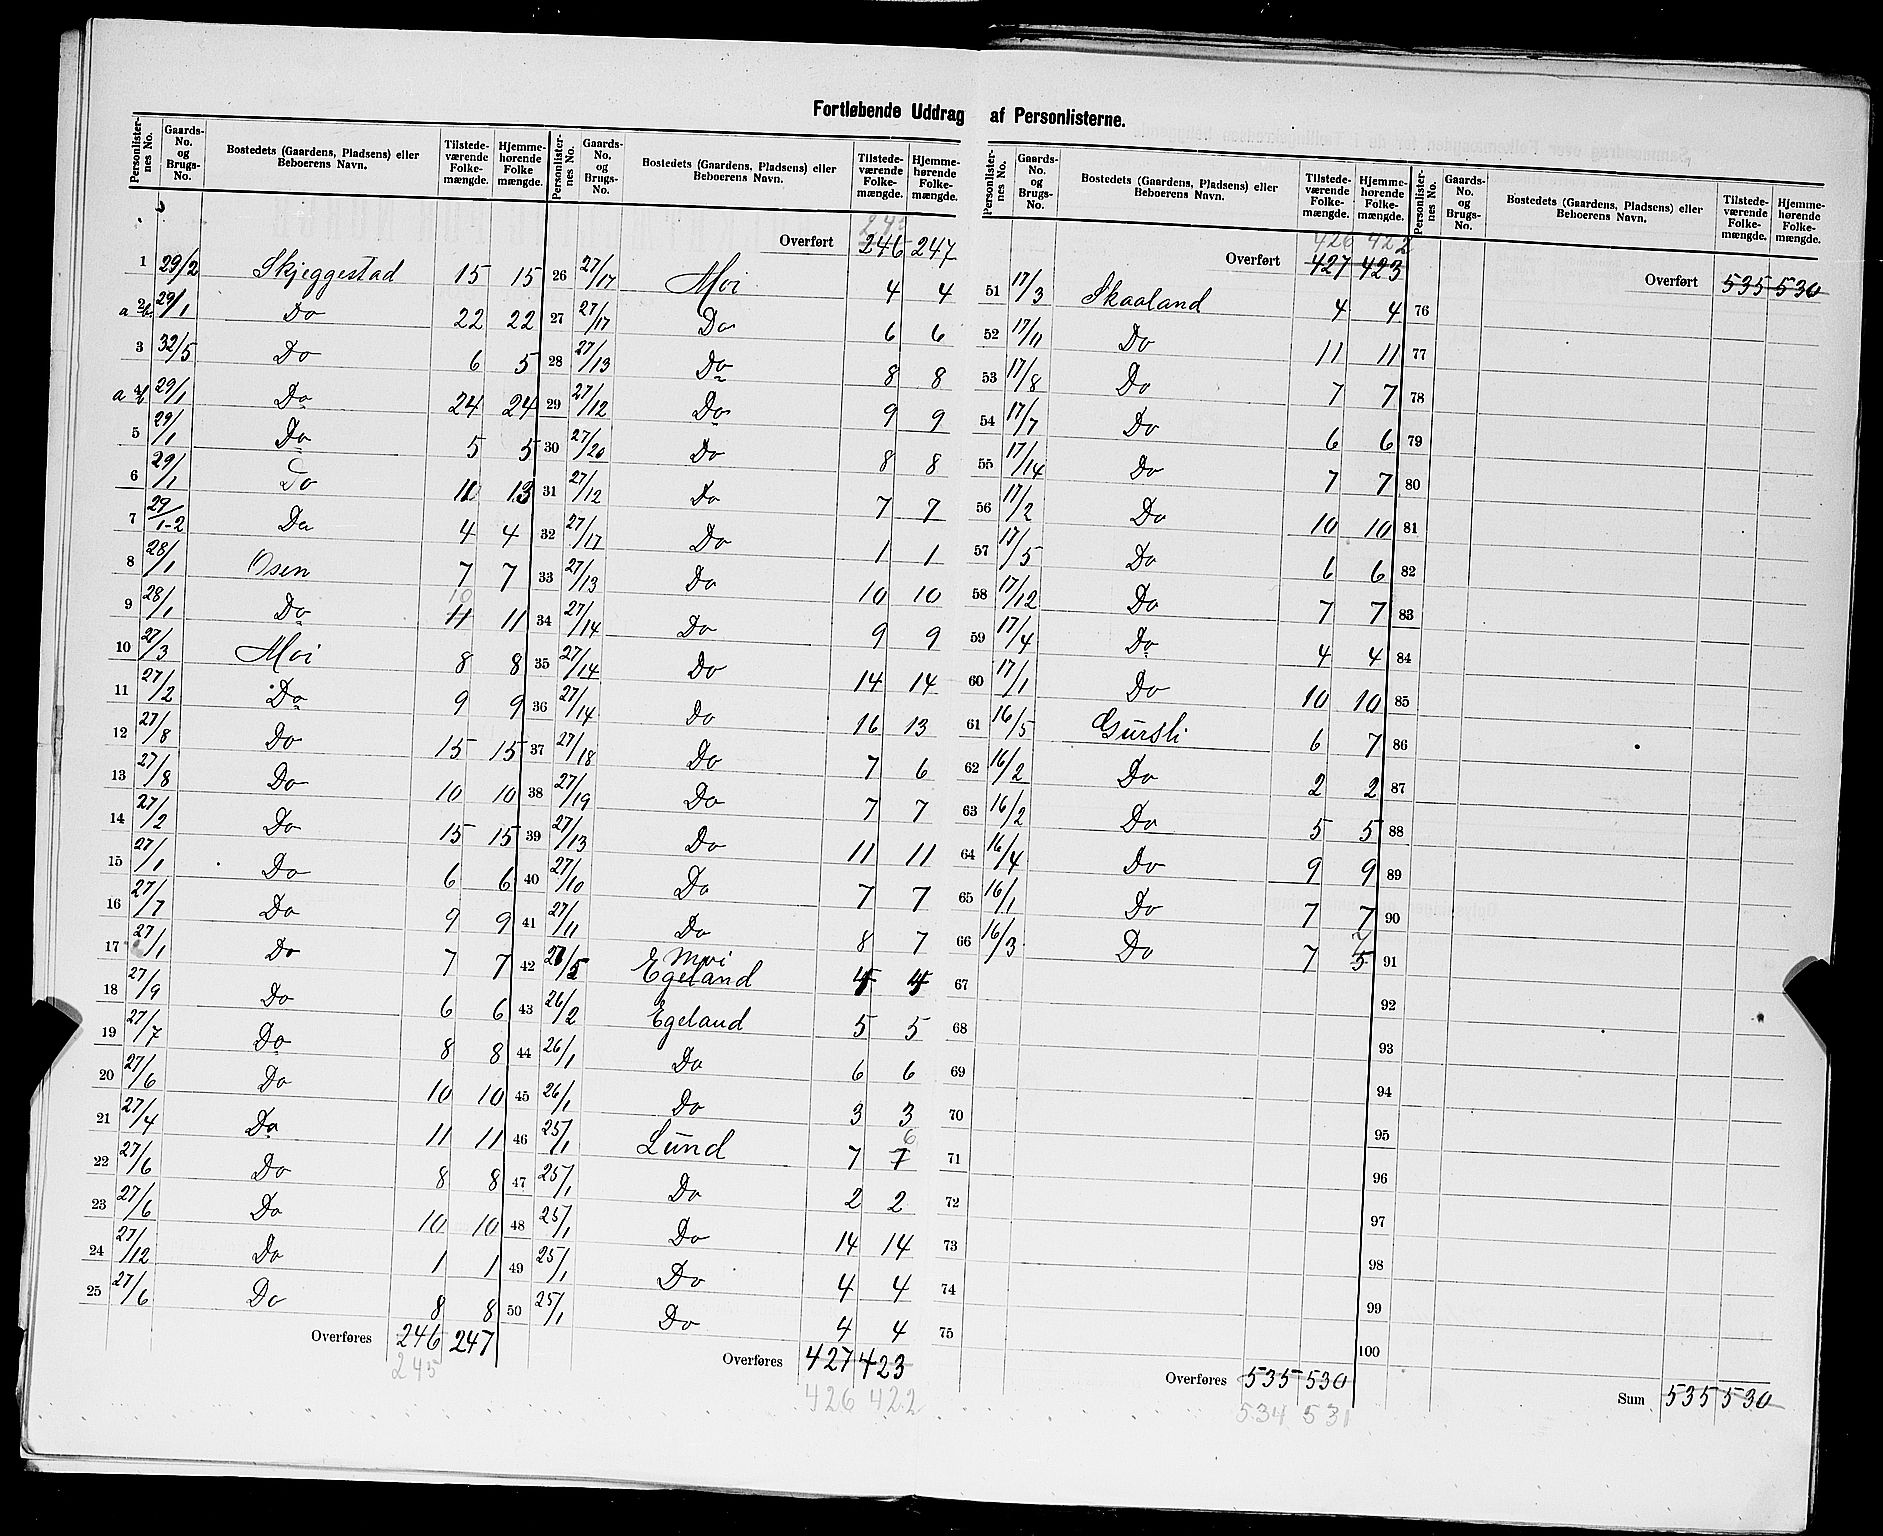 Fortløbende Uddrag af Personlisterne.
Personlister-nes No. | Gaards-No. og Brugs-No. | Bostedets (Gaardens, Pladsens) eller Beboerens Navn. | Tilstede-værende Folke-mængde. | Hjemme-hørende Folke mængde.
1 29/2 Skjeggestad 15 15
a 2b 29/1 Do 22 22
3 32/5 Do 6 5
a 4b 29/1 Do 24 24
5 29/1 Do 5 5
6 29/1 Do 10 13
7 29/1-2 Do 4 4
8 28/1 Osen 7 7
9 28/1 Do 11 10 11
10 27/3 Moi 8 8
11 27/2 Do 9 9
12 27/8 Do 15 15
13 27/8 Do 10 10
14 27/2 Do 15 15
15 27/1 Do 6 6
16 27/7 Do 9 9
17 27/1 Do 7 7
18 27/9 Do 6 6
19 27/7 Do 8 8
20 27/6 Do 10 10
21 27/4 Do 11 11
22 27/6 Do 8 8
23 27/6 Do 10 10
24 27/12 Do 1 1
25 27/6 Do 8 8
Overføres 246 247
245
Personlister-nes No. | Gaards-No. og Brugs-No. | Bostedets (Gaardens, Pladsens) eller Beboerens Navn. | Tilstede-værende Folke-mængde. | Hjemme-hørende Folke-mængde.
245
Overført 246 247
26 27/17 Moi 4 4
27 27/17 Do 6 6
28 27/13 Do 8 8
29 27/12 Do 9 9
30 27/20 Do 8 8
31 27/12 Do 7 7
32 27/17 Do 1 1
33 27/13 Do 10 10
34 27/14 Do 9 9
35 27/14 Do 14 14
36 27/14 Do 16 13
37 27/18 Do 7 6
38 27/19 Do 7 7
39 27/13 Do 11 11
40 27/10 Do 7 7
41 27/11 Do 8 7
Moi
42 27/5 Egeland 4 4
43 26/2 Egeland 5 5
44 26/1 Do 6 6
45 26/1 Do 3 3
46 25/1 Lund 7 7 6
47 25/1 Do 2 2
48 25/1 Do 14 14
49 25/1 Do 4 4
50 25/1 Do 4 4
Overføres 427 423
426 422
Personlister-nes No. | Gaards-No. og Brugs-No. | Bostedets (Gaardens, Pladsens) eller Beboerens Navn. | Tilstede-værende Folke-mængde. | Hjemme-hørende Folke-mængde.
426 422
Overført 427 423
51 17/3 Skaaland 4 4
52 17/11 Do 11 11
53 17/8 Do 7 7
54 17/7 Do 6 6
55 17/14 Do 7 7
56 17/2 Do 10 10
57 17/5 Do 6 6
58 17/12 Do 7 7
59 17/4 Do 4 4
60 17/1 Do 10 10
61 16/5 Gursli 6 7
62 16/2 Do 2 2
63 16/2 Do 5 5
64 16/4 Do 9 9
65 16/1 Do 7 7
66 16/3 Do 7 5 7
67
68
69
70
71
72
73
74
75
Overføres 535 530
534 531
Personlister-nes No. | Gaards-No. og Brugs-No. | Bostedets (Gaardens, Pladsens) eller Beboerens Navn. | Tilstede-værende Folke-mængde. | Hjemme-hørende Folke-mængde.
Overført 535 530
76
77
78
79
80
81
82
83
84
85
86
87
88
89
90
91
92
93
94
95
96
97
98
99
100
Sum 535 530